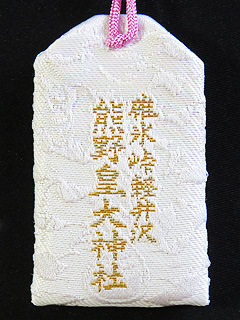 碓氷峠軽井沢
熊野皇大神社